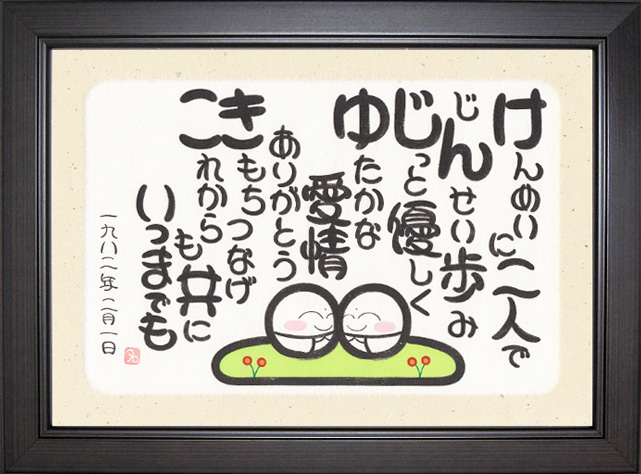 けんめいに二人で
じんせい歩み
じっと優しく
ゆたかな
愛情
ありがとう
きもちつなげ
これから
も共に
いつまでも
一九八二年二月一日